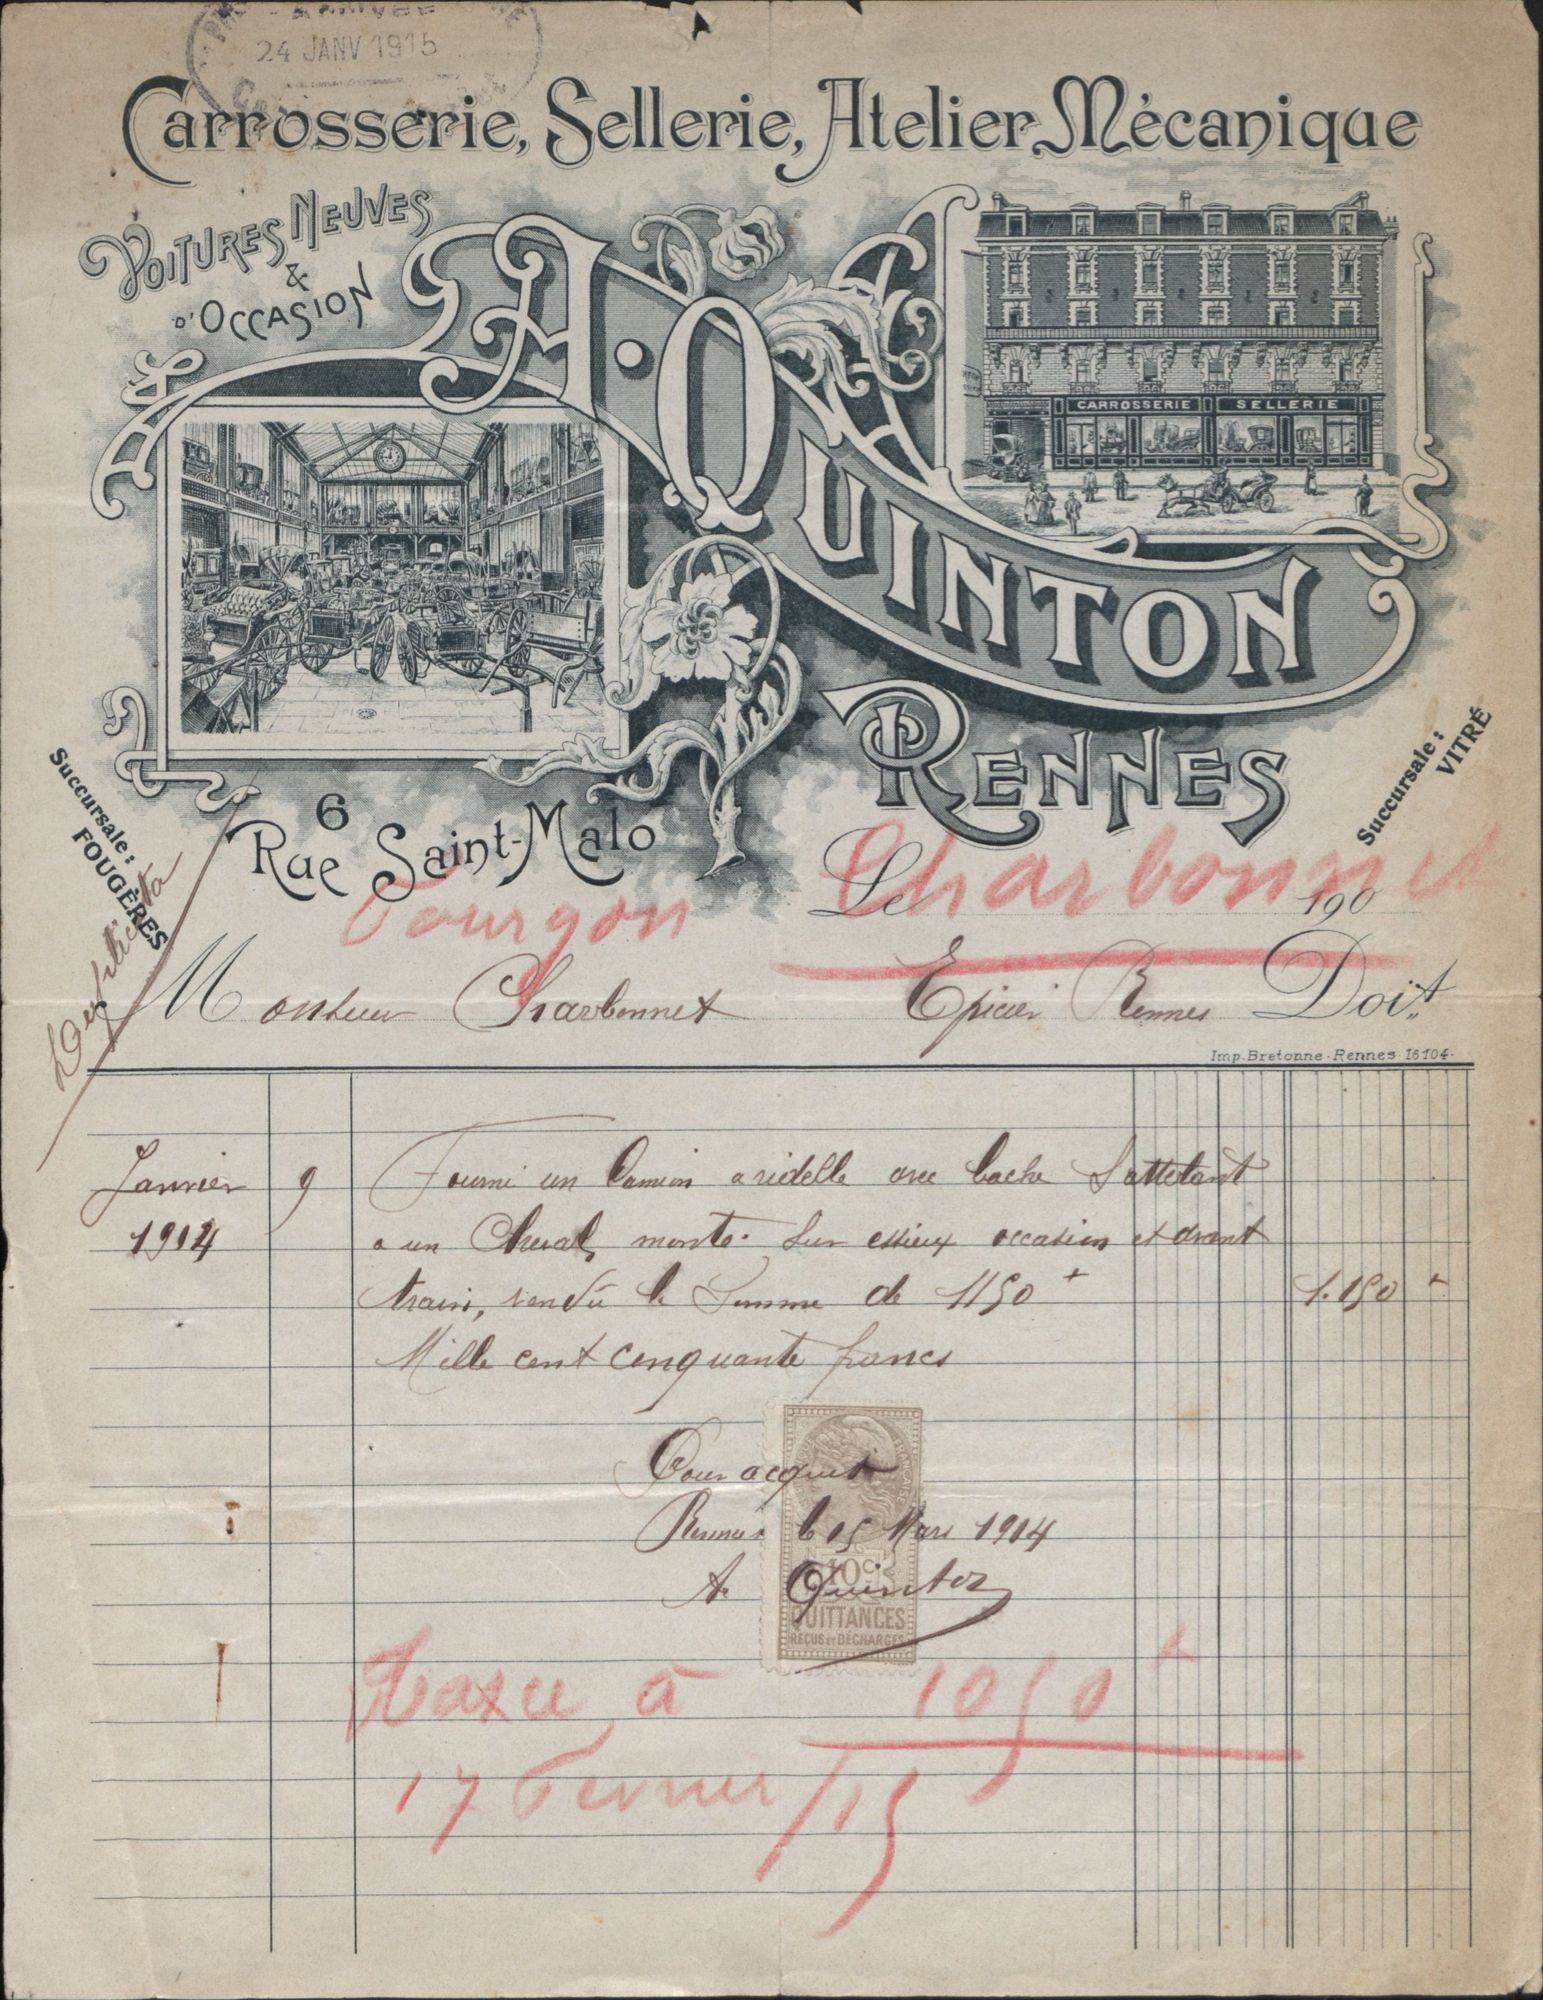 24 JANV 1915
Carrosserie, Sellerie, Atelier Mécanique
VOITURES NEUVES
&
D'OCCASION
A. QUINTON
CARROSSERIE SELLERIE
RENNES
6
Rue Saint-Malo
Succursale :
FOUGÈRES
Succursale :
VITRÉ
Duplicata
Fourgon
Charbonnet
Le 190
Monsieur Charbonnet Epicier Rennes Doit
Imp. Bretonne - Rennes - 16104 -
Janvier 9 Fourni un Camion a ridelle avec bache S'attelant
1914 a un Cheval, monté sur essieux occasion et avant
train, vendu la Somme de 1150 f 1.150 f
Mille cent cinquante francs
Pour acquit
Rennes le 15 Mars 1914
A. Quinton
FRANÇAISE
10c
QUITTANCES
REÇUS ET DÉCHARGES
Taxée à 1050 f
17 Février /15